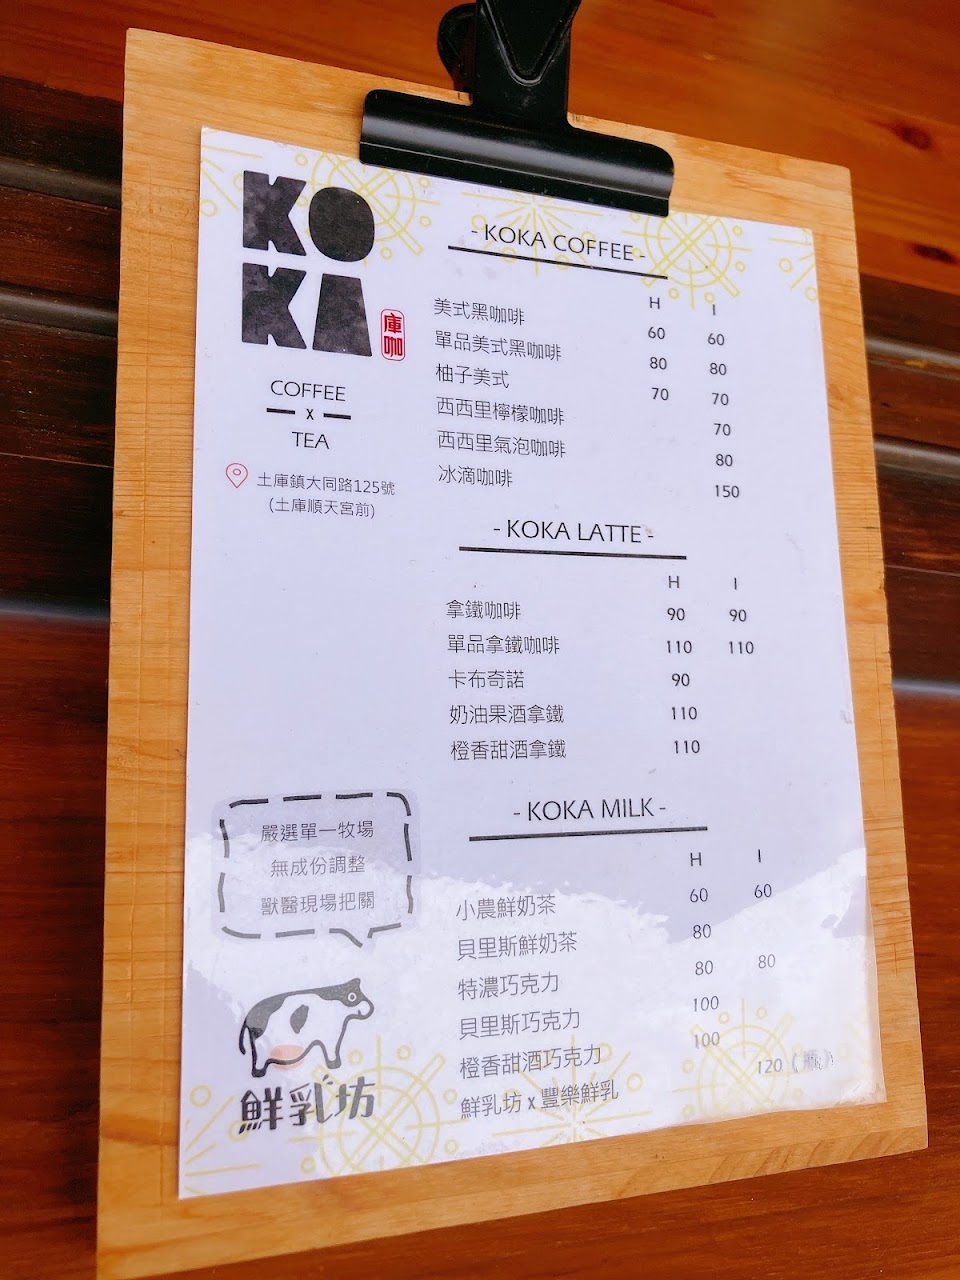 KO
KA
庫咖
COFFEE
x
TEA
土庫鎮大同路125號
(土庫順天宮前)
- KOKA COFFEE -
H I
美式黑咖啡 60 60
單品美式黑咖啡 80 80
柚子美式 70 70
西西里檸檬咖啡 70
西西里氣泡咖啡 80
冰滴咖啡 150
- KOKA LATTE -
H I
拿鐵咖啡 90 90
單品拿鐵咖啡 110 110
卡布奇諾 90
奶油果酒拿鐵 110
橙香甜酒拿鐵 110
- KOKA MILK -
H I
小農鮮奶茶 60 60
貝里斯鮮奶茶 80
特濃巧克力 80 80
貝里斯巧克力 100
橙香甜酒巧克力 100
鮮乳坊 x 豐樂鮮乳 120
嚴選單一牧場
無成份調整
獸醫現場把關
鮮乳坊